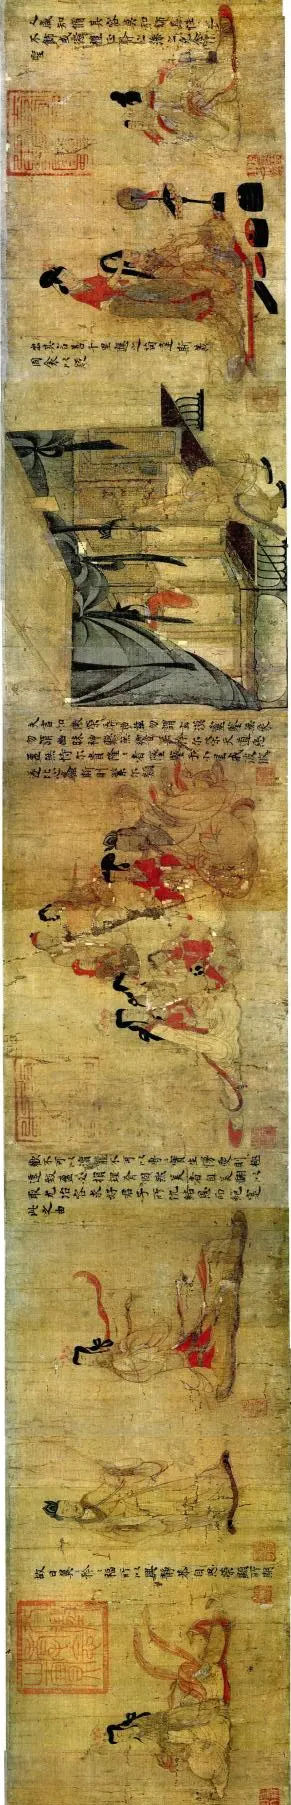 人咸知脩其容莫知飾其性性之
不飾或愆禮正斧之藻之克念作
聖
出其言善千里應之苟違斯義
同衾以疑
夫言如微榮辱由茲勿謂玄漠靈鑒無象
勿謂幽昧神聽無響無矜爾榮天道惡
盈無恃爾貴隆隆者墜鑒于小星戒彼攸
遂比心螽斯則繁爾類
歡不可以黷寵不可以專專實生慢愛則極
遷致盈必損理有固然美者自美翩以
取尤冶容求好君子所讎結恩而絕寔
此之由
故曰翼翼矜矜福所以興靜恭自思榮顯所期